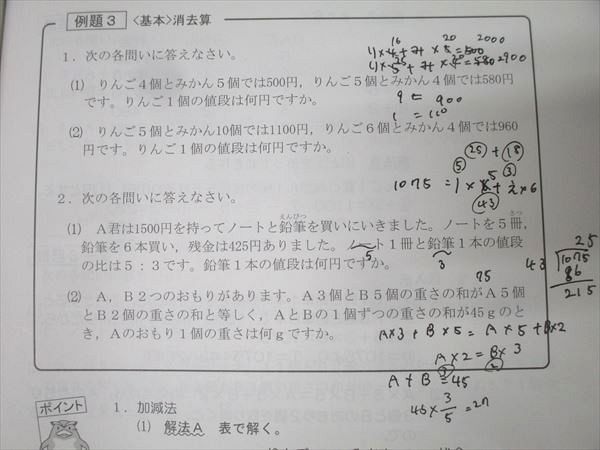 例題3 〈基本〉消去算
1．次の各問いに答えなさい。
(1) りんご4個とみかん5個では500円，りんご5個とみかん4個では580円
です。りんご1個の値段は何円ですか。
(2) りんご5個とみかん10個では1100円，りんご6個とみかん4個では960
円です。りんご1個の値段は何円ですか。
2．次の各問いに答えなさい。
(1) A君は1500円を持ってノートと鉛筆を買いにいきました。ノートを5冊，
鉛筆を6本買い，残金は425円ありました。ノート1冊と鉛筆1本の値段
の比は5：3です。鉛筆1本の値段は何円ですか。
(2) A，B2つのおもりがあります。A3個とB5個の重さの和がA5個
とB2個の重さの和と等しく，AとBの1個ずつの重さの和が45gのと
き，Aのおもり1個の重さは何gですか。
16 20 2000
2900
9 = 900
㉕ + ⑱
⑤ ③
1075 =
㊸
5
3
75
25
43 1075
86
215
A×3 + B×5 = A×5 + B×2
A×2 = B×3
③ ②
A + B = 45
45×3/5 = 27
ポイント
1．加減法
(1) 解法A 表で解く。